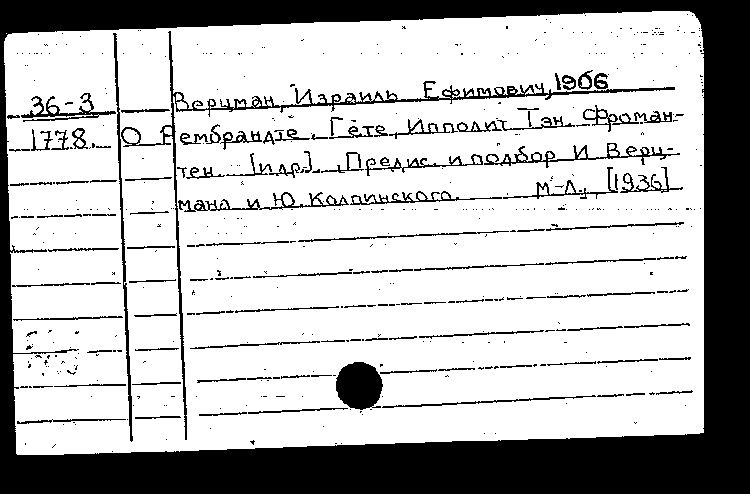 36-3 Верцман, Израиль Ефимович, 1906
1778. О Рембрандте. Гёте, Ипполит Тэн. Фроман-
тен [и др.]. Предис. и подбор И Верц-
мана и Ю. Колпинского. М-Л., [1936]